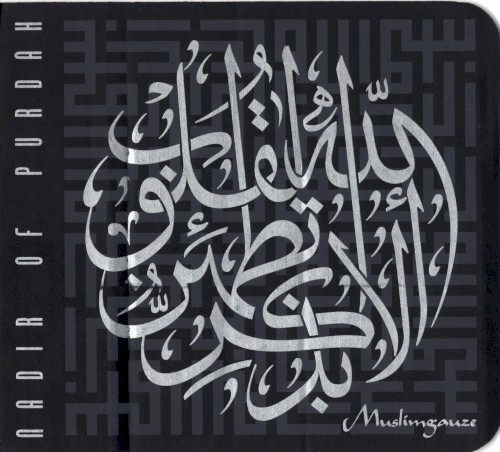 NADIR OF PURDAH
ألا بذكر الله تطمئن القلوب
Muslimgauze